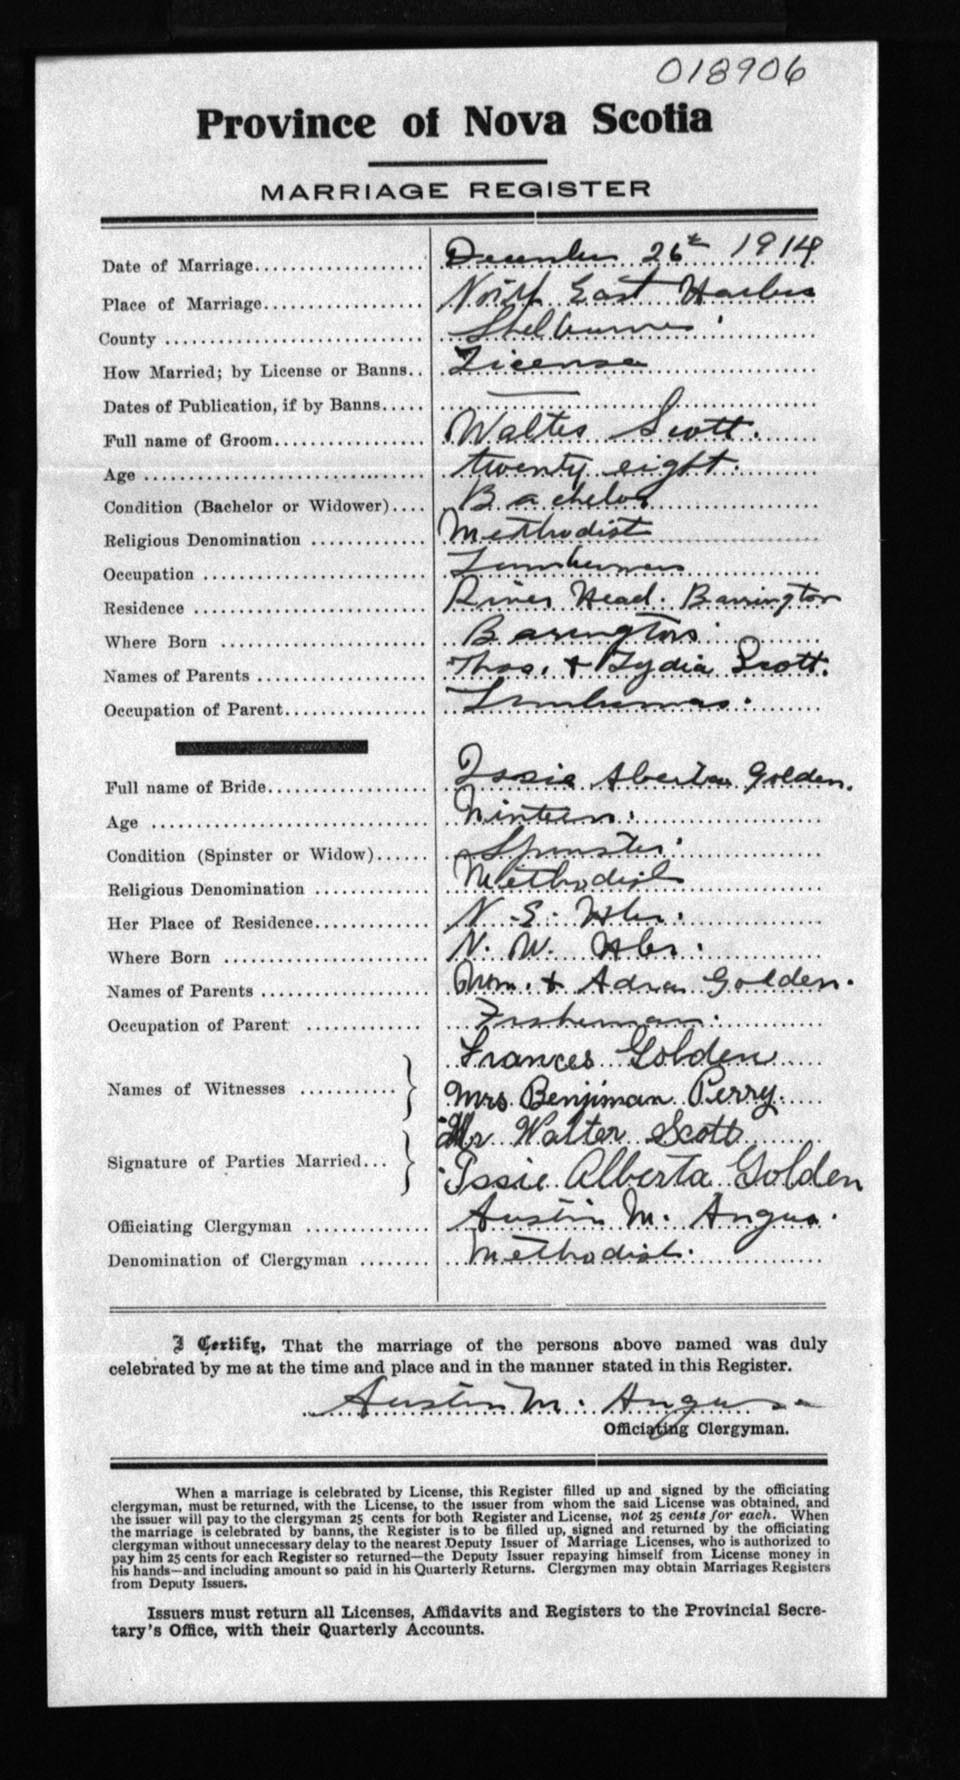 018906
Province of Nova Scotia
MARRIAGE REGISTER
Date of Marriage.................... December 26th 1914
Place of Marriage................... North East Harbor
County ............................ Shelburne
How Married; by License or Banns.. License
Dates of Publication, if by Banns.....
Full name of Groom................. Walter Scott.
Age ............................... twenty eight.
Condition (Bachelor or Widower).... Bachelor
Religious Denomination ............ Methodist
Occupation ........................ Lumberman
Residence ......................... River Head. Barrington
Where Born ....................... Barrington
Names of Parents .................. Thos. & Lydia Scott.
Occupation of Parent................ Lumberman.
Full name of Bride.................. Issie Alberta Golden.
Age .............................. Ninteen.
Condition (Spinster or Widow)...... Spinster
Religious Denomination ............ Methodist
Her Place of Residence............. N. E. Hbr.
Where Born ....................... N. W. Hbr.
Names of Parents .................. Wm. & Adra Golden.
Occupation of Parent ............. Fisherman.
Frances Golden
Names of Witnesses ...........
Mrs. Benjiman Perry.
Mr Walter Scott
Signature of Parties Married...
Issie Alberta Golden
Officiating Clergyman ............. Austin M. Angus.
Denomination of Clergyman ........ Methodist.
I Certify, That the marriage of the persons above named was duly
celebrated by me at the time and place and in the manner stated in this Register.
Austin M. Angus
Officiating Clergyman.
When a marriage is celebrated by License, this Register filled up and signed by the officiating
clergyman, must be returned, with the License, to the issuer from whom the said License was obtained, and
the issuer will pay to the clergyman 25 cents for both Register and License, not 25 cents for each. When
the marriage is celebrated by banns, the Register is to be filled up, signed and returned by the officiating
clergyman without unnecessary delay to the nearest Deputy Issuer of Marriage Licenses, who is authorized to
pay him 25 cents for each Register so returned—the Deputy Issuer repaying himself from License money in
his hands—and including amount so paid in his Quarterly Returns. Clergymen may obtain Marriages Registers
from Deputy Issuers.
Issuers must return all Licenses, Affidavits and Registers to the Provincial Secre-
tary's Office, with their Quarterly Accounts.